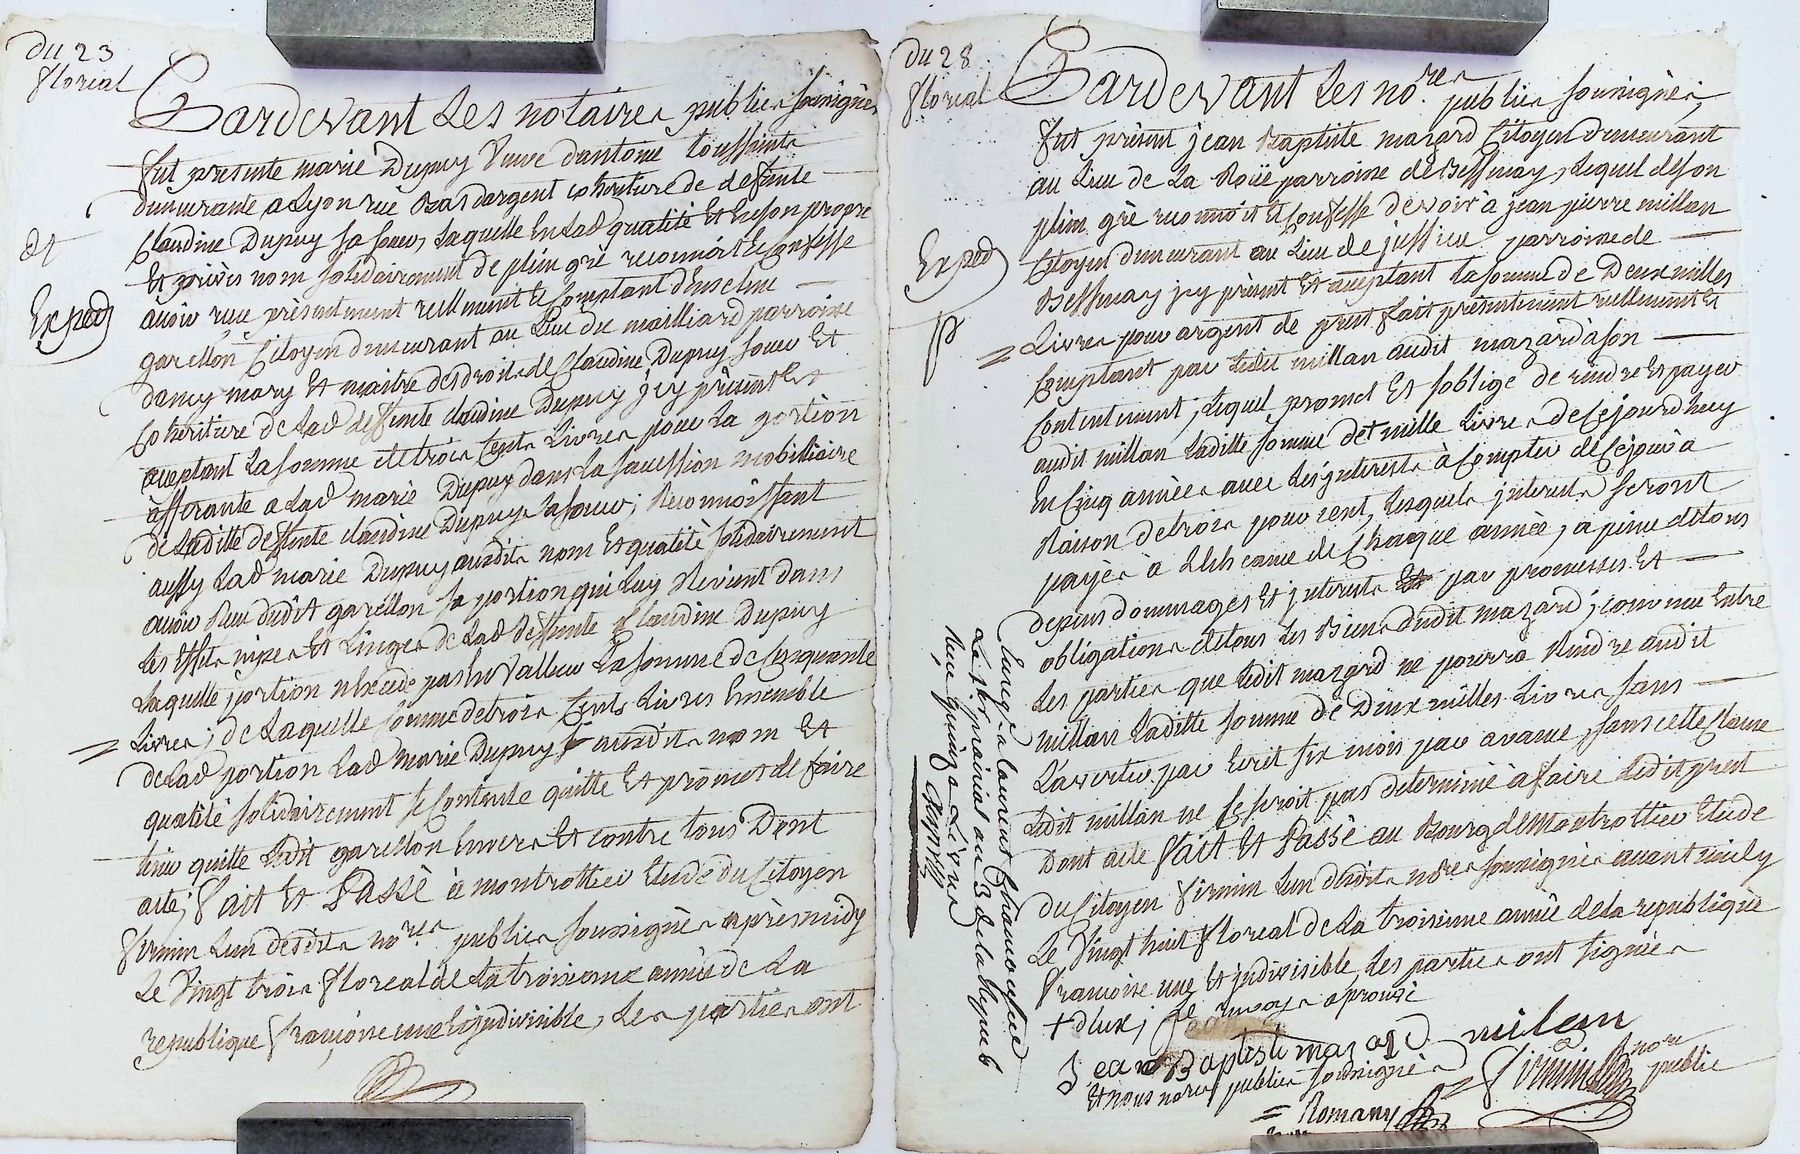 du 23
floreal
Pardevant Les notaires publics soussignés
fut presente marie Dupuy veuve d'antoine toussaint
demeurante a Lyon rue Bas dargent coheritiere de deffunte
Claudine Dupuy sa soeur, laquelle en lad qualité et en son propre
et privés nom solidairement de plein gré reconnoit et confesse
avoir reçu présentement réellement et comptant d'enselme
garellon Citoyen demeurant au Lieu de mailliard parroisse
dancy mary et maitre des droits de Claudine Dupuy soeur et
coheritiere de lad deffunte claudine Dupuy icy présent et
acceptant la somme de trois cents Livres pour la portion
afferante a lad marie Dupuy dans la succession mobiliaire
de laditte deffunte claudine Dupuy sa soeur; reconnoissant
aussy lad marie Dupuy ausdits nom et qualité solidairement
avoir reçu dudit garellon sa portion qui luy revient dans
les effets nipes et linges de lad deffunte Claudine Dupuy
laquelle portion n'excede pas en valleur la somme de cinquante
Livres; de laquelle somme de trois cents livres ensemble
de lad portion lad marie Dupuy ausdits nom et
qualité solidairement se contente quitte et promet de faire
tenir quitte ledit garellon envers et contre tous Dont
acte; fait et Passé à montrottier Etude du Citoyen
firmin L'un desdits no.res publics soussignés après midy
le vingt trois floreal de la troisieme année de la
republique françoise une et indivisible, les parties ont
Exped
du 28
floreal
Pardevant Les no.res publics soussignés
fut présent jean Baptiste mazard Citoyen demeurant
au Lieu de La Roüe parroisse de Bessenay, lequel de son
plein gré reconnoit et confesse devoir à jean pierre millan
Citoyen demeurant au Lieu de jussieu parroisse de
Bessenay icy présent et acceptant la somme de Deux milles
Livres pour argent de prest fait présentement réellement et
comptant par ledit millan audit mazard à son
contentement, lequel promet et s'oblige de rendre et payer
audit millan laditte somme de + mille livres de ce jourd'huy
en cinq années avec les interests à compter de ce jour à
raison de trois pour cent, lesquels interests seront
payés à l'echeance de chaque année, a peine de tous
depens dommages et interests par promesses et
obligations de tous les biens dudit mazard; convenu entre
les parties que ledit mazard ne pourra rendre audit
millan laditte somme de Deux milles livres sans
l'avertir par ecrit six mois par avance, sans cette clause
ledit millan ne se seroit pas determiné à faire ledit prest
Dont acte fait et Passé au Bourg de Montrottier Etude
du Citoyen firmin L'un desdits no.res soussignés avant midy
le vingt huit floreal de la troisieme année de la republique
françoise une et indivisible, les parties ont signées
+ deux; renvoy approuvé
Jean Baptiste mazard milan
Et nous no.res publics soussignés firmin no.re public
= Romany
Exped
Enreg. à laurent Chamousset
le 1er prairial an 3 de la Repub
Reçu quinze Livres